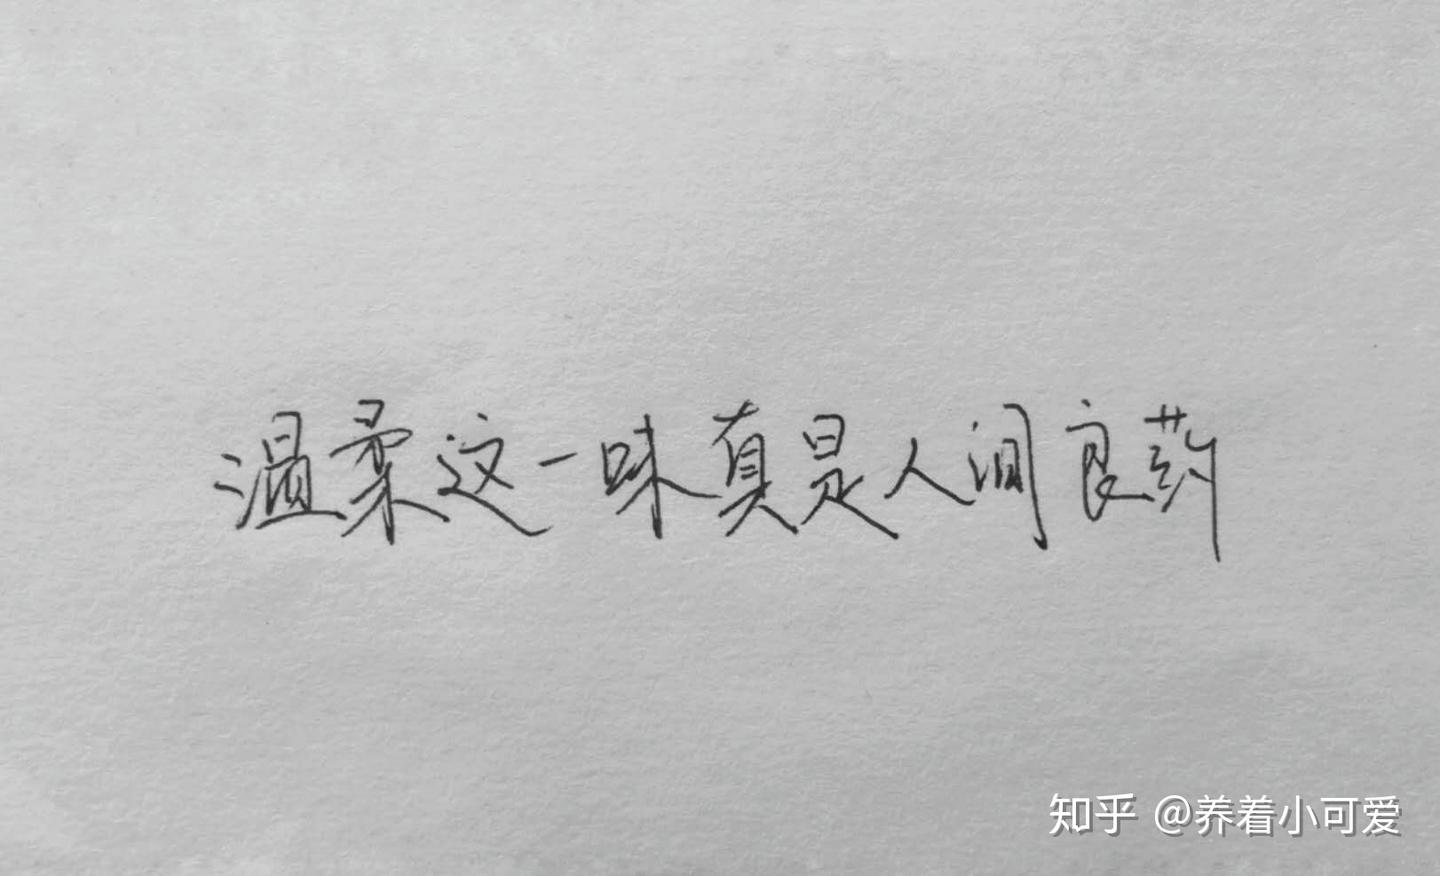 温柔这一味真是人间良药
知乎 @养着小可爱